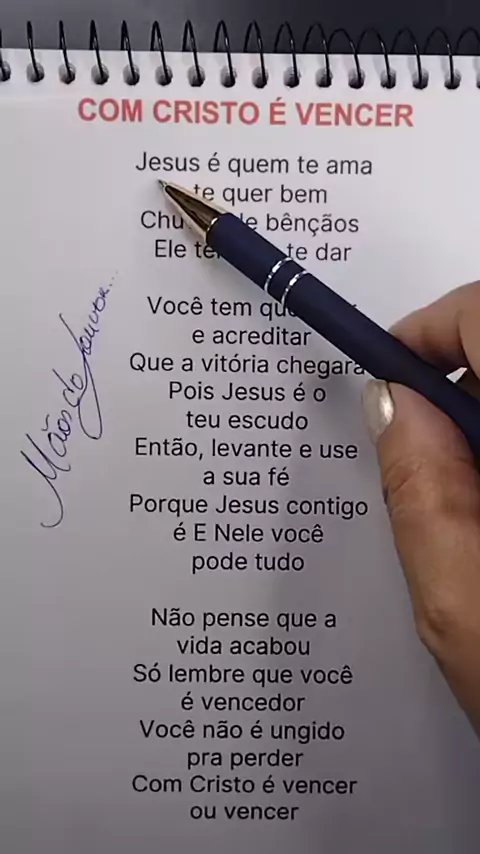 COM CRISTO É VENCER
Jesus é quem te ama
te quer bem
Chu de bênçãos
Ele te te dar
Você tem que
e acreditar
Que a vitória chegará
Pois Jesus é o
teu escudo
Então, levante e use
a sua fé
Porque Jesus contigo
é E Nele você
pode tudo
Não pense que a
vida acabou
Só lembre que você
é vencedor
Você não é ungido
pra perder
Com Cristo é vencer
ou vencer
Mãos de louvor...